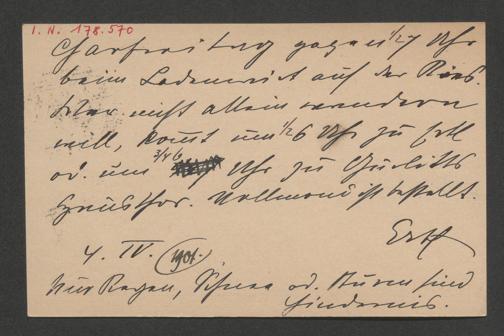 I. N. 178.570
Charfreitag gegen 1/2 7 Uhr
beim Ladenwirt auf der Ries.
Wer nicht allein wandern
will, komt um 1/2 6 Uhr zu Ertl
od. um 3/4 6 Uhr zu Gurlitts
Hausthor. Vollmond ist bestellt.
Ertl
4. IV. 1901.
Nur Regen, Schnee od. Sturm sind
Hindernis.